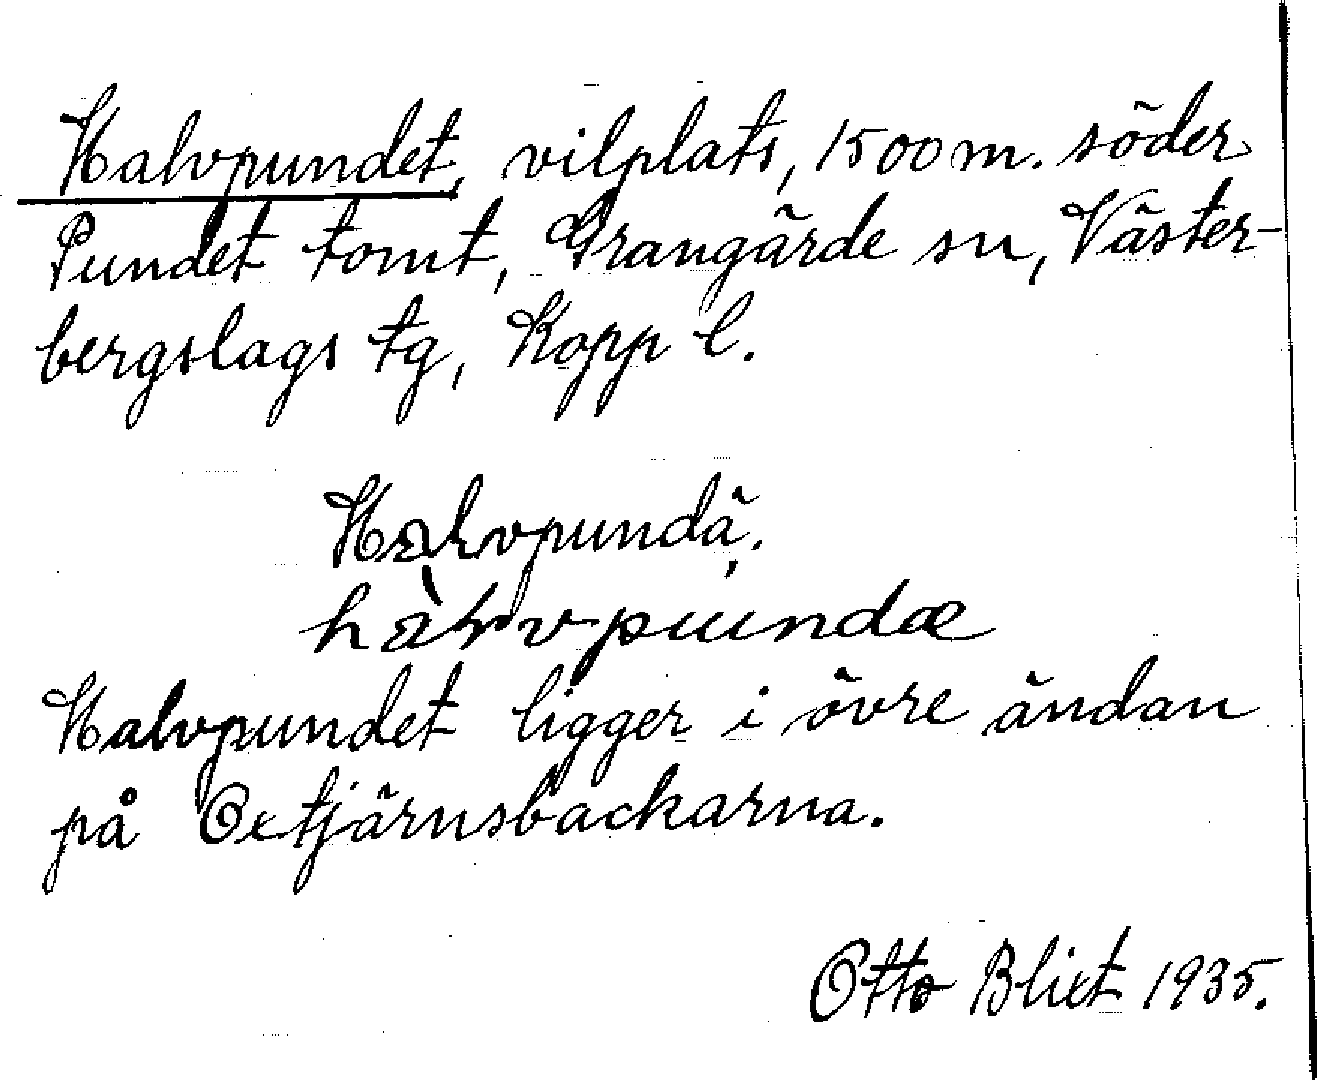 Halvpundet, vilplats, 1500 m. söder
Pundet tomt, Grangärde sn, Väster-
bergslags tg, Kopp l.
Halvpundä.
Halvpundet ligger i övre ändan
på Oxtjärnsbackarna.
Otto Blixt 1935.